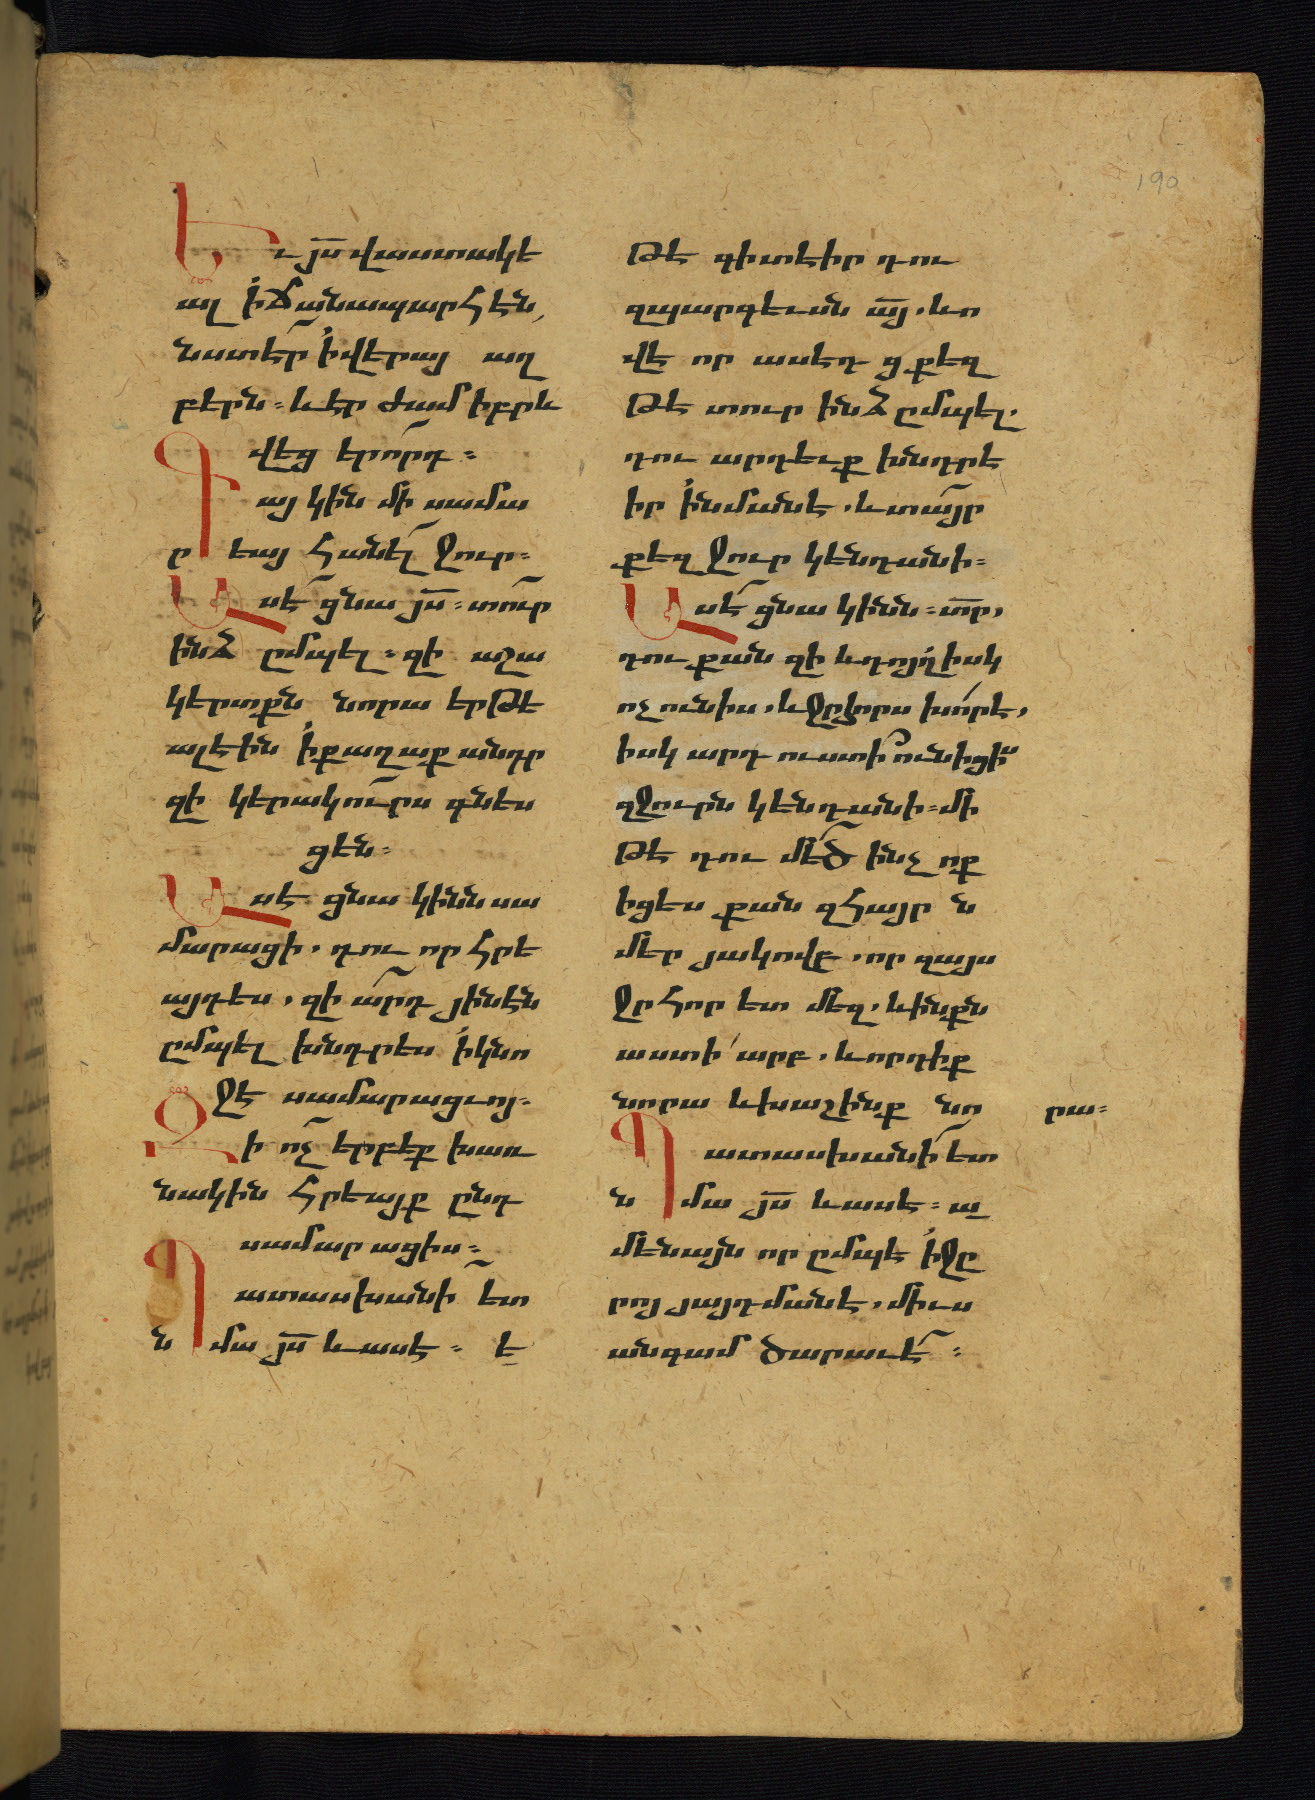 190
Եւ յս վաստակե
ալ ի ճանապարհէն,
նստէր ի վերայ աղ
բերն։ և էր ժամ իբրև
վեցերորդ։
Գայ կին մի սամա
րեայ հանել ջուր։
Ասէ ցնա յս։ տուր
ինձ ըմպել։ զի աշա
կերտքն նորա երթե
ալ էին ի քաղաք անդր
զի կերակուրս գնես
ցեն։
Ասէ ցնա կինն սա
մարացի, դու որ հրե
այդ ես, զի արդ յինէն
ըմպել խնդրես ի կնո
ջէ սամարացւոյ։
Զի ոչ երբեք խառ
նակին հրեայք ընդ
սամարացիս։
Պատասխանի ետ
նմա յս և ասէ։ ե
թէ գիտէիր դու
զպարգեւսն այ, և ո
վ է որ ասէդ ցքեզ
թէ տուր ինձ ըմպել.
դու արդեւք խնդրէ
իր ի նմանէ, և տայր
քեզ ջուր կենդանի։
Ասէ ցնա կինն։ տր,
դու քանզի և դոյլ իսկ
ոչ ունիս, և ջրհորս խոր է,
իսկ արդ ուստի ունիցիս
զջուրն կենդանի։ մի
թէ դու մեծ ինչ ոք
իցես քան զհայրն
մեր յակովբ, որ զայս
ջրհոր ետ մեզ, և ինքն
աստի արբ, և որդիք
նորա և խաշինք նո րա։
Պատասխանի ետ
նմա յս և ասէ։ ա
մենայն որ ըմպէ ի ջը
րոյ յայդմանէ, միւս
անգամ ծարաւէ։